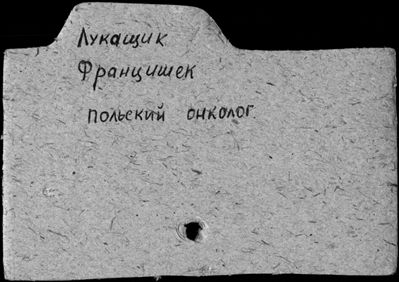 Лукащик
Францишек
польский онколог.